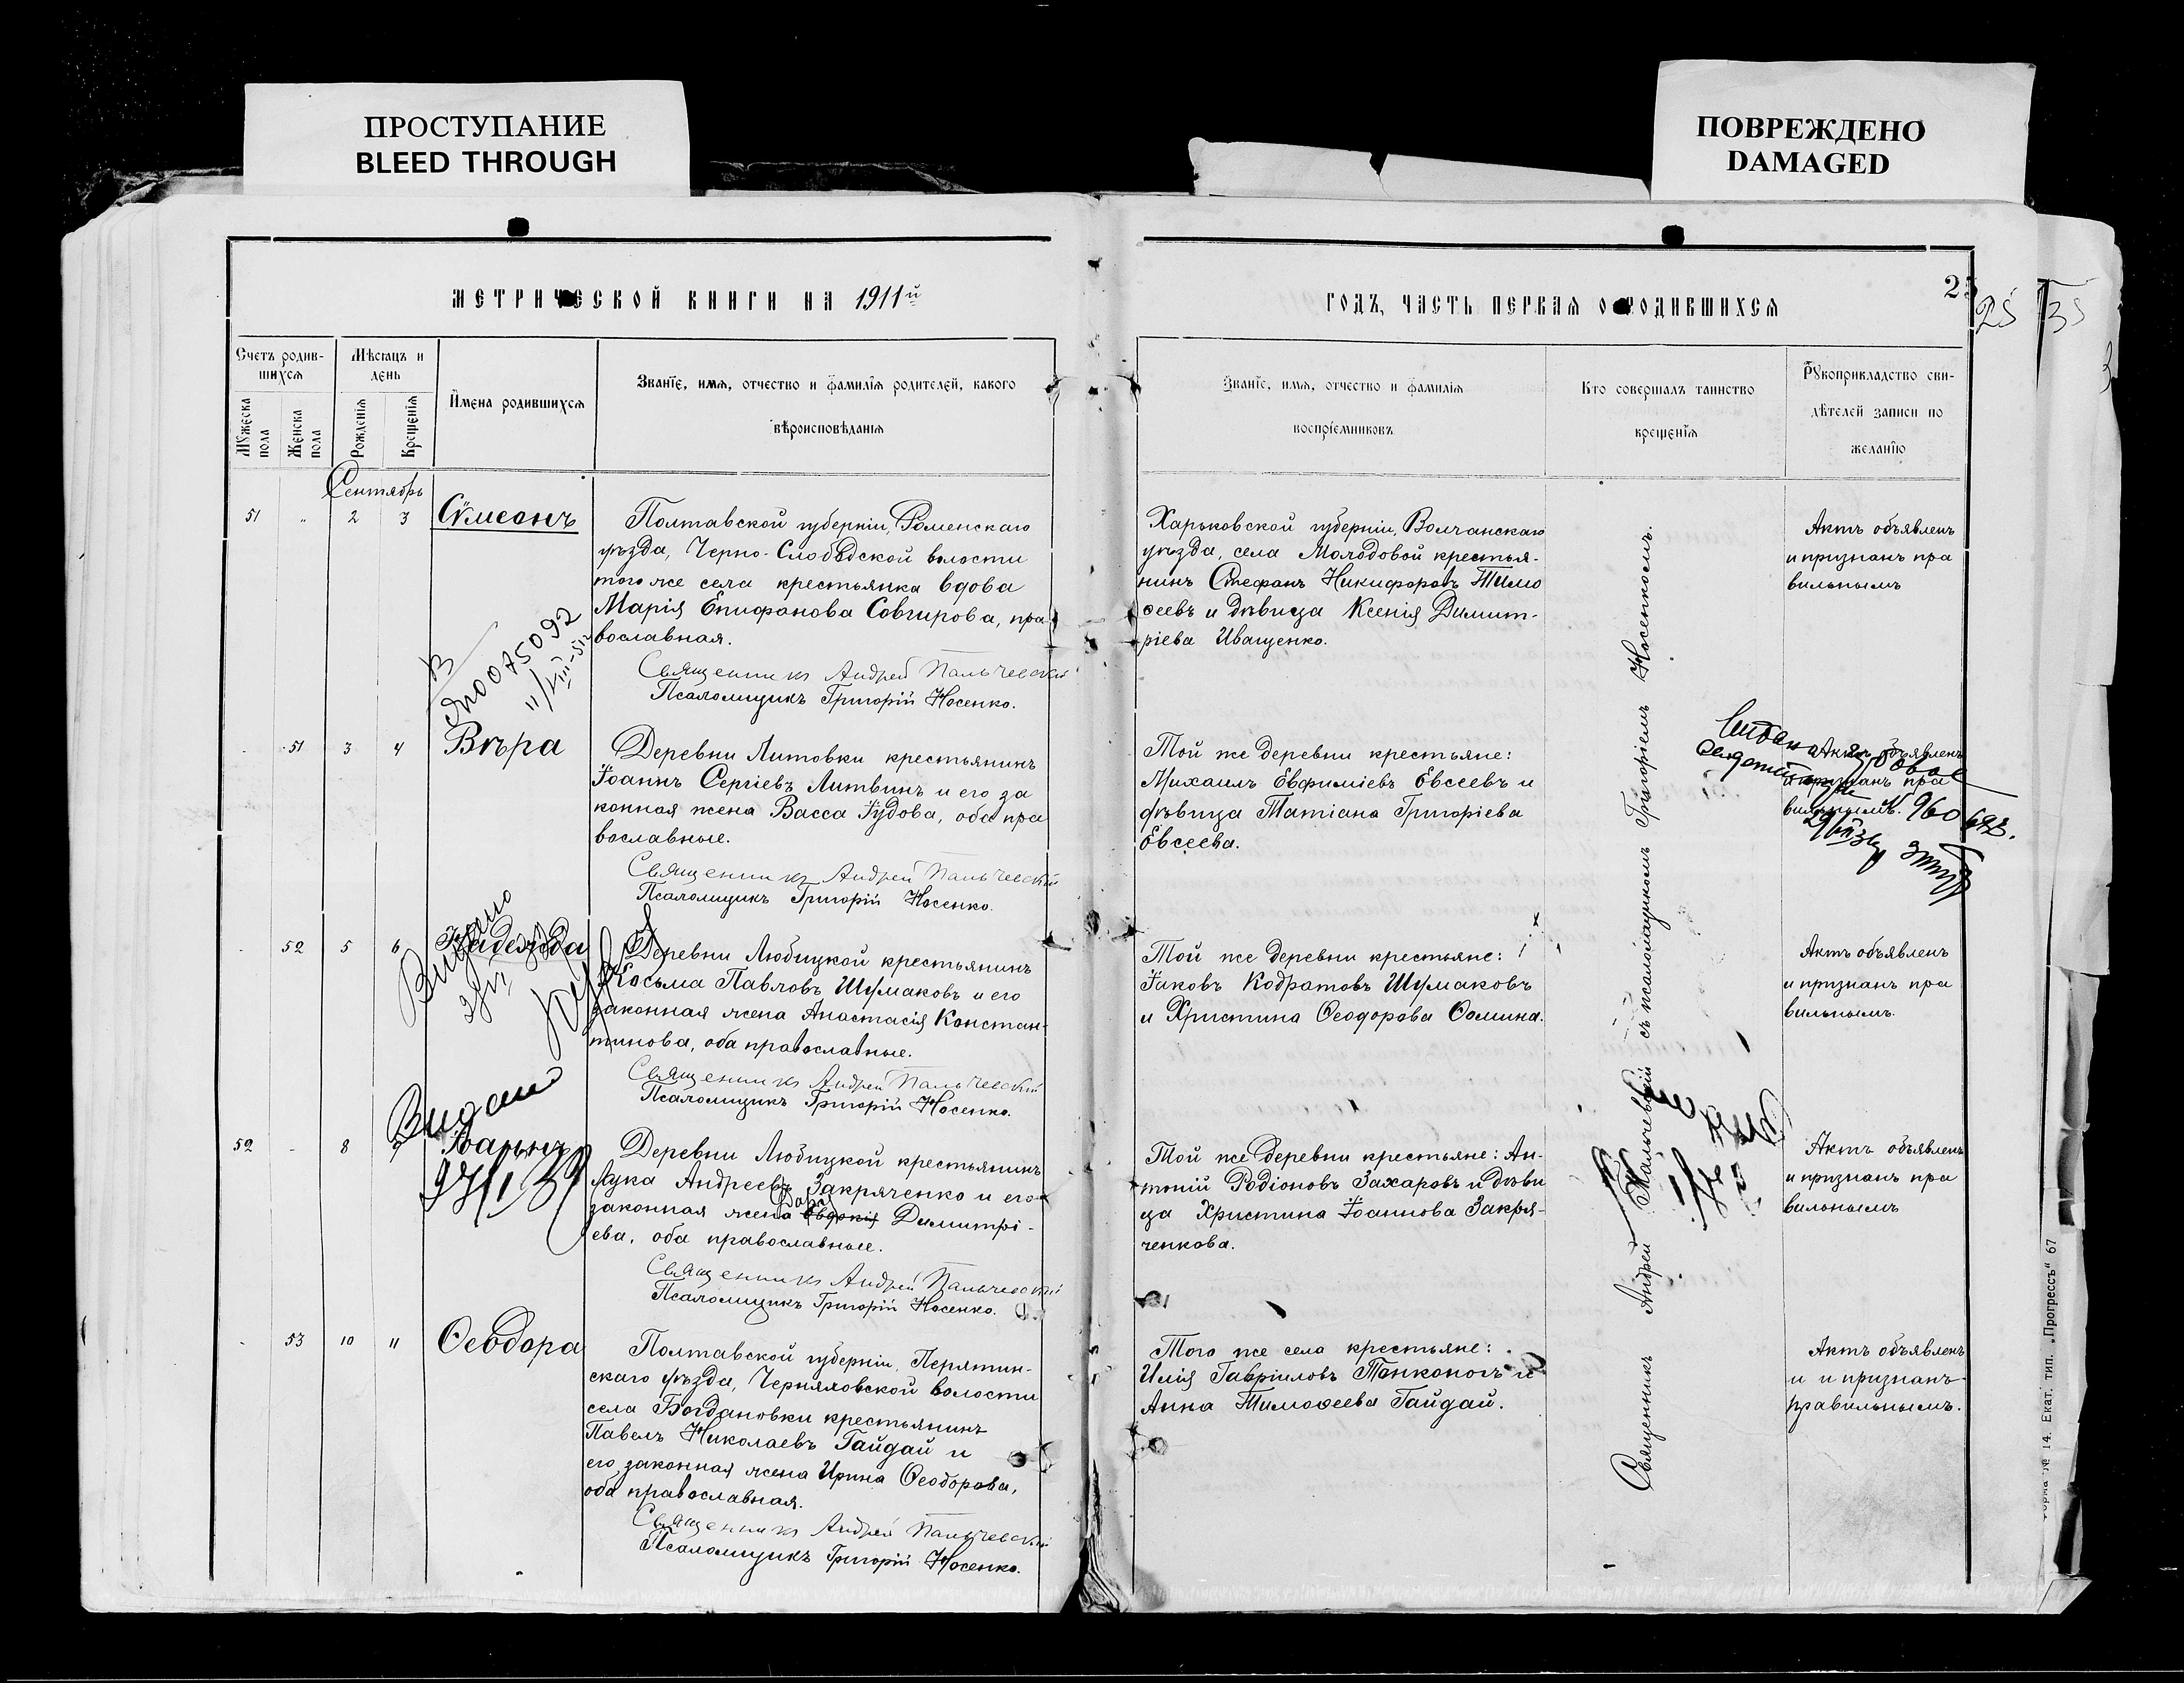 ПРОСТУПАНИЕ
BLEED THROUGH
ПОВРЕЖДЕНО
DAMAGED
МЕТРИЧЕСКОЙ КНИГИ НА 1911й
Счетъ родив-
шихся
Мужеска
пола
Женска
пола
Мѣсяцъ и
день
Рожденія
Крещенія
Имена родившихся
Званіе, имя, отчество и фамилія родителей, какого
вѣроисповѣданія
Сентябрь
51 " 2 3 Сѷмеонъ
Полтавской губерніи, Роменскаго
уѣзда, Черно-Слободской волости
того же села крестьянка вдова
Марія Епифанова Совгирова, пра
вославная.
Священникъ Андрей Пальчевскій
Псаломщикъ Григорій Носенко.
В
№0075092
11/VIII-51
- 51 3 4 Вѣра
Деревни Литовки крестьянинъ
Іоаннъ Сергіевъ Литвинъ и его за
конная жена Васса Іудова, оба пра
вославные.
Священникъ Андрей Пальчевскій
Псаломщикъ Григорій Носенко.
- 52 5 6 Надежда
Видано
Деревни Любицкой крестьянинъ
Косьма Павловъ Шумаковъ и его
законная жена Анастасія Констан-
тинова, оба православные.
Священникъ Андрей Пальчевскій
Псаломщикъ Григорій Носенко.
Видано
52 - 8 Іоаннъ
Деревни Любицкой крестьянинъ
Лука Андреевъ Закряченко и его
законная жена Евдокія Димитрі-
ева, оба православные.
Священникъ Андрей Пальчевскій
Псаломщикъ Григорій Носенко.
- 53 10 11 Ѳеодора
Полтавской губерніи, Пирятин-
скаго уѣзда, Черняховской волости
села Богдановки крестьянинъ
Павелъ Николаевъ Гайдай и
его законная жена Ирина Ѳеодорова,
оба православная.
Священникъ Андрей Пальчевскій
Псаломщикъ Григорій Носенко.
ГОДЪ, ЧАСТЬ ПЕРВАЯ О РОДИВШИХСЯ
25
35
Званіе, имя, отчество и фамилія
воспріемниковъ
Кто совершалъ таинство
крещенія
Рукоприкладство сви-
дѣтелей записи по
желанію
Харьковской губерніи, Волчанскаго
уѣзда, села Молодовой крестья-
нинъ Стефанъ Никифоровъ Тимо
ѳеевъ и дѣвица Ксенія Димит-
ріева Иващенко.
Актъ объявленъ
и признанъ пра
вильнымъ
Той же деревни крестьяне:
Михаилъ Евфиміевъ Евсеевъ и
дѣвица Татіана Григоріева
Евсеева.
Актъ объявленъ
и признанъ пра
вильнымъ.
Той же деревни крестьяне:
Іаковъ Кодратовъ Шумаковъ
и Христина Ѳеодорова Ѳомина.
Актъ объявленъ
и признанъ пра
вильнымъ.
Той же деревни крестьяне: Ан-
тоній Родіоновъ Захаровъ и дѣви
ца Христина Іоаннова Закря-
ченкова.
Актъ объявленъ
и признанъ пра
вильнымъ
Того же села крестьяне:
Илія Гавріиловъ Тонконогъ и
Анна Тимоѳеева Гайдай.
Актъ объявленъ
и и признанъ
правильнымъ.
Священникъ Андрей Пальчевскій съ псаломщикомъ Григоріемъ Носенкомъ.
№ 14. Екат. тип. „Прогрессъ" 67